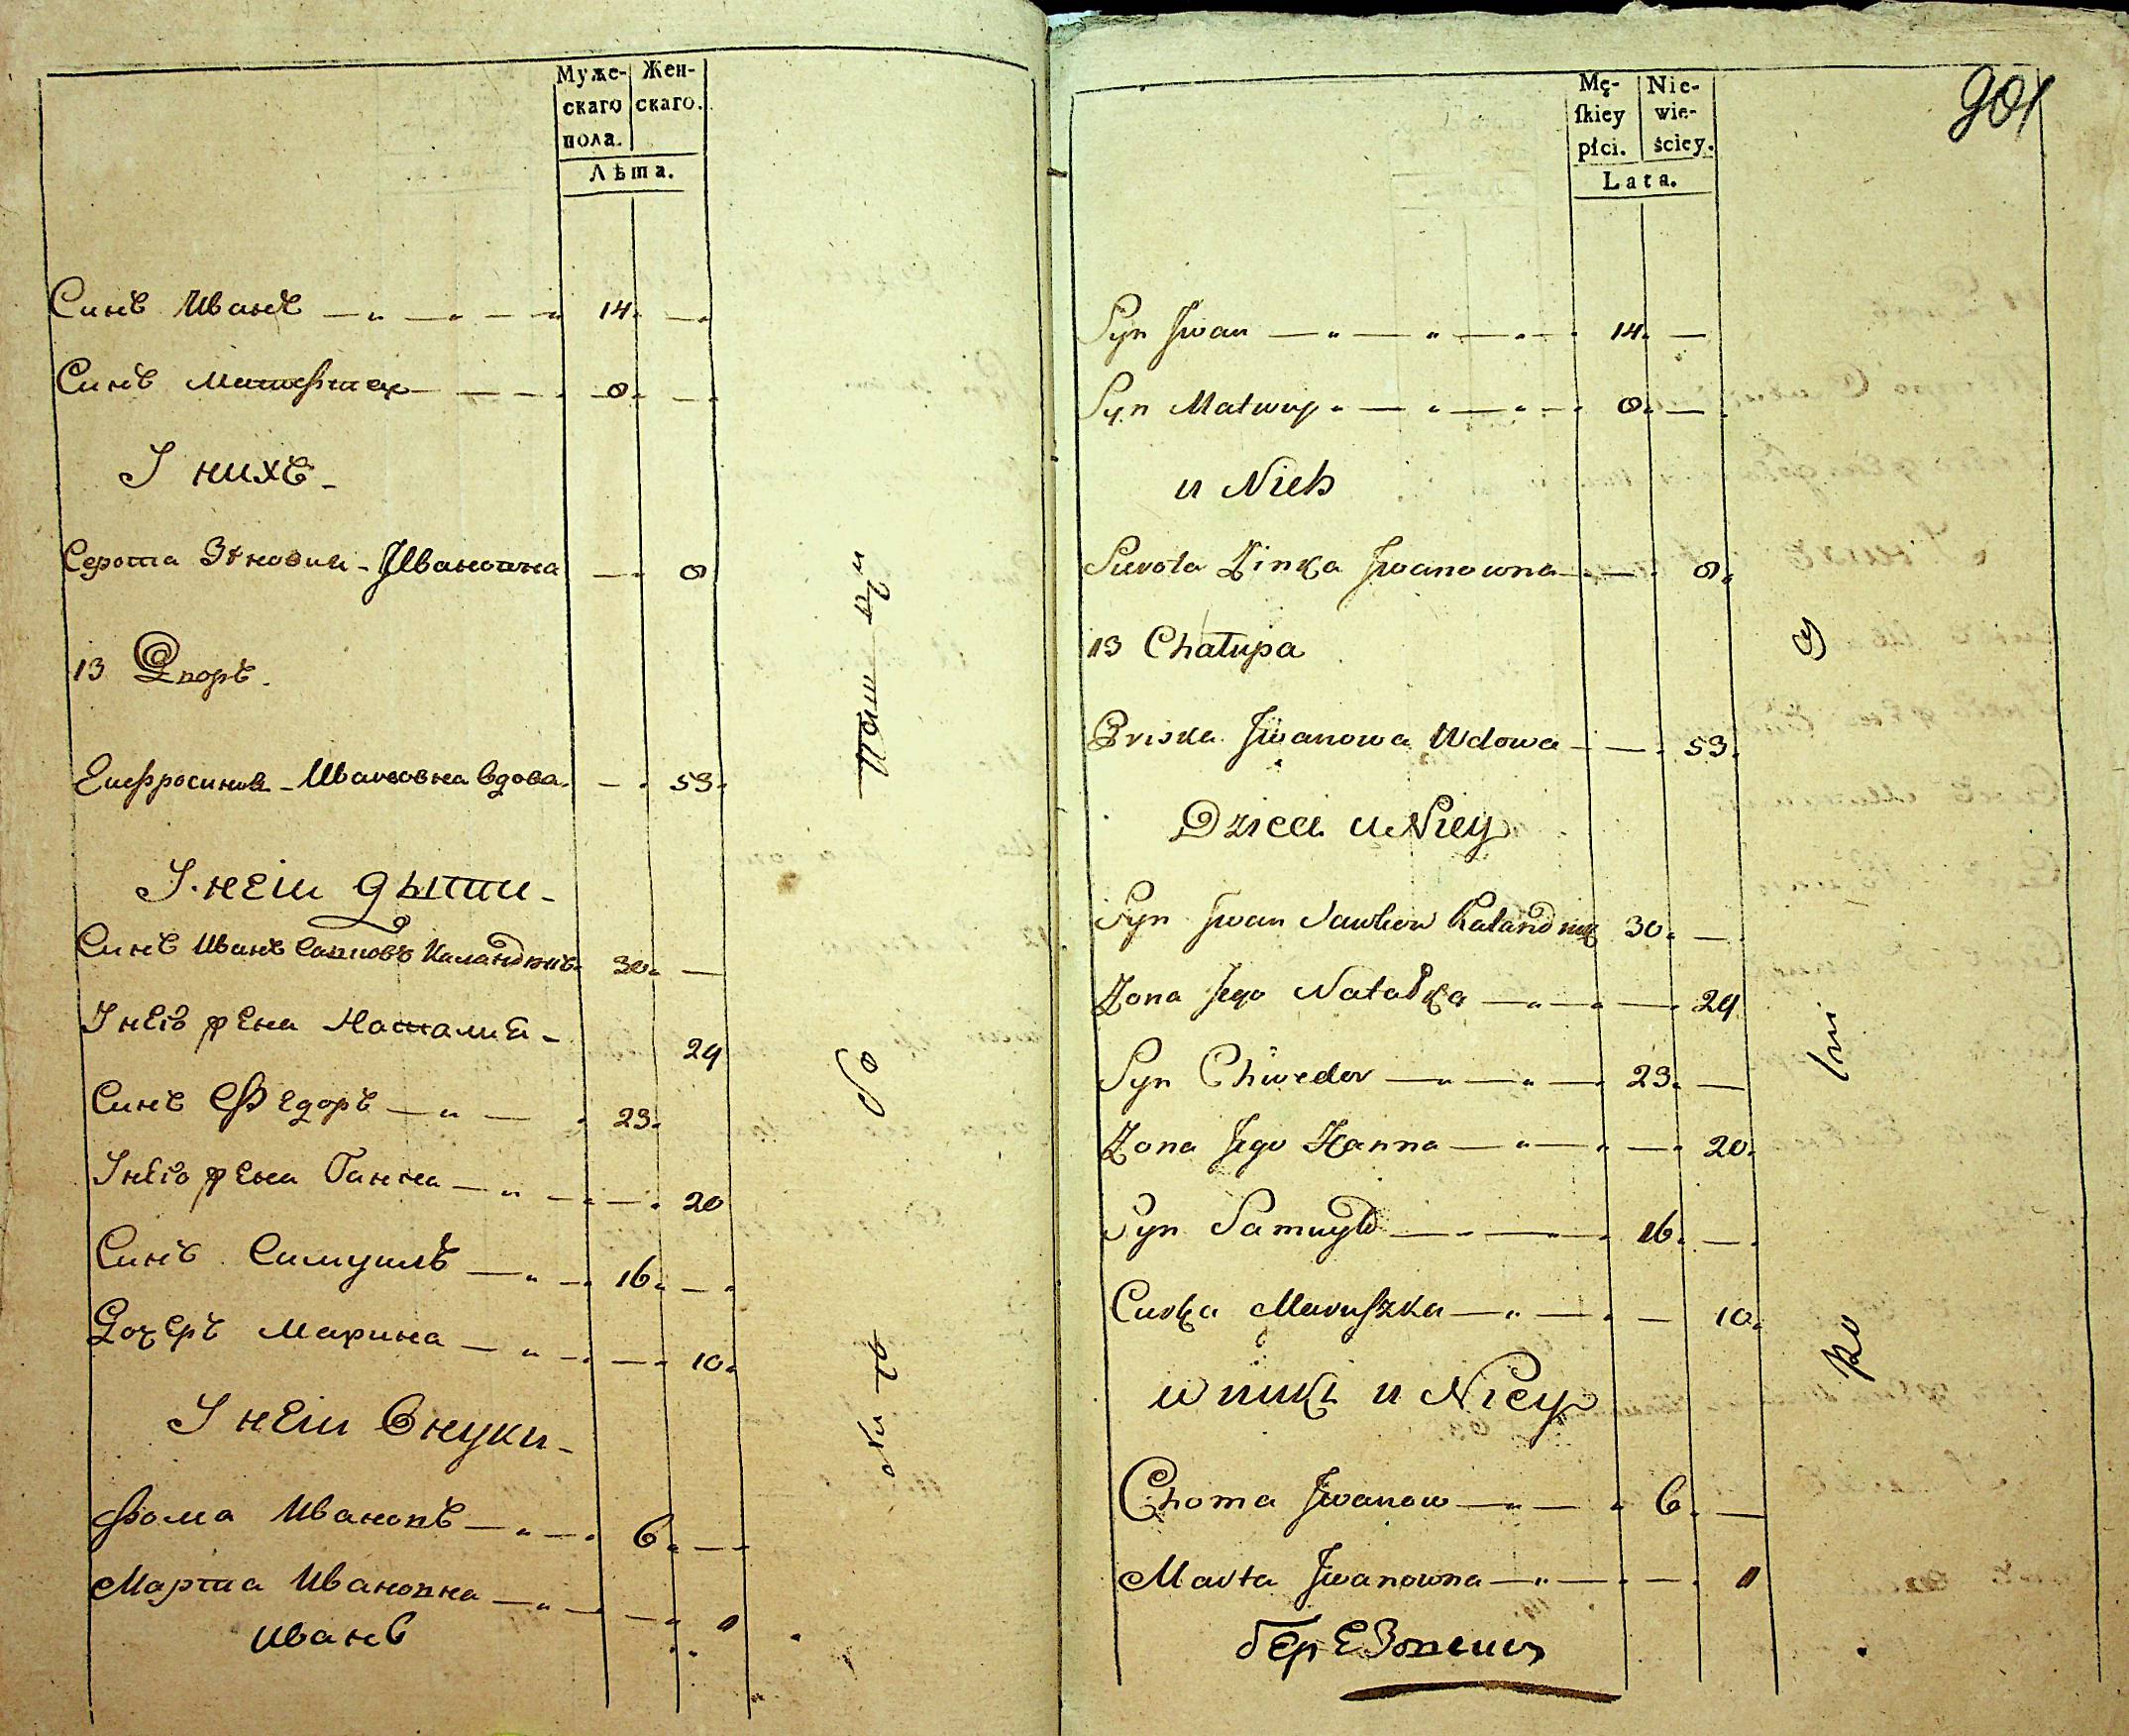 Муже-
скаго
пола.
Жен-
скаго.
Лѣта.
Синъ Иванъ 14.
Синъ Матфтей 8.
У нихъ
Серота Зѣновии Ивановна 8
13 Дворъ.
Еифросиния Ивановна вдова 53.
У неіи дѣти
Синъ Иванъ Савковъ Каландикъ 30.
У него жена Наталия 24
Синъ Федоръ 23.
У него жена Ганна 20
Синъ Самуилъ 16.
Дочеръ Марина 10.
У неіи внуки
Фома Ивановъ 6.
Марта Ивановна 1
Иванъ
901
Mę-
ſkiey
płci.
Nie-
wie-
ściey.
Lata.
Syn Jwan 14.
Syn Matwiy 8.
u Nich
Sierota Zinka Jwanowna 8.
13 Chałupa
Priska Jwanowa Wdowa 53.
Dzieci u Niey
Syn Jwan Sawkow Kalandik 30.
Zona Jego Natalka 24
Syn Chwedor 23.
Zona Jego Hanna 20.
Syn Samuyło 16.
Curka Maruszka 10.
wnuki u Niey
Choma Jwanow 6.
Marta Jwanowna 1